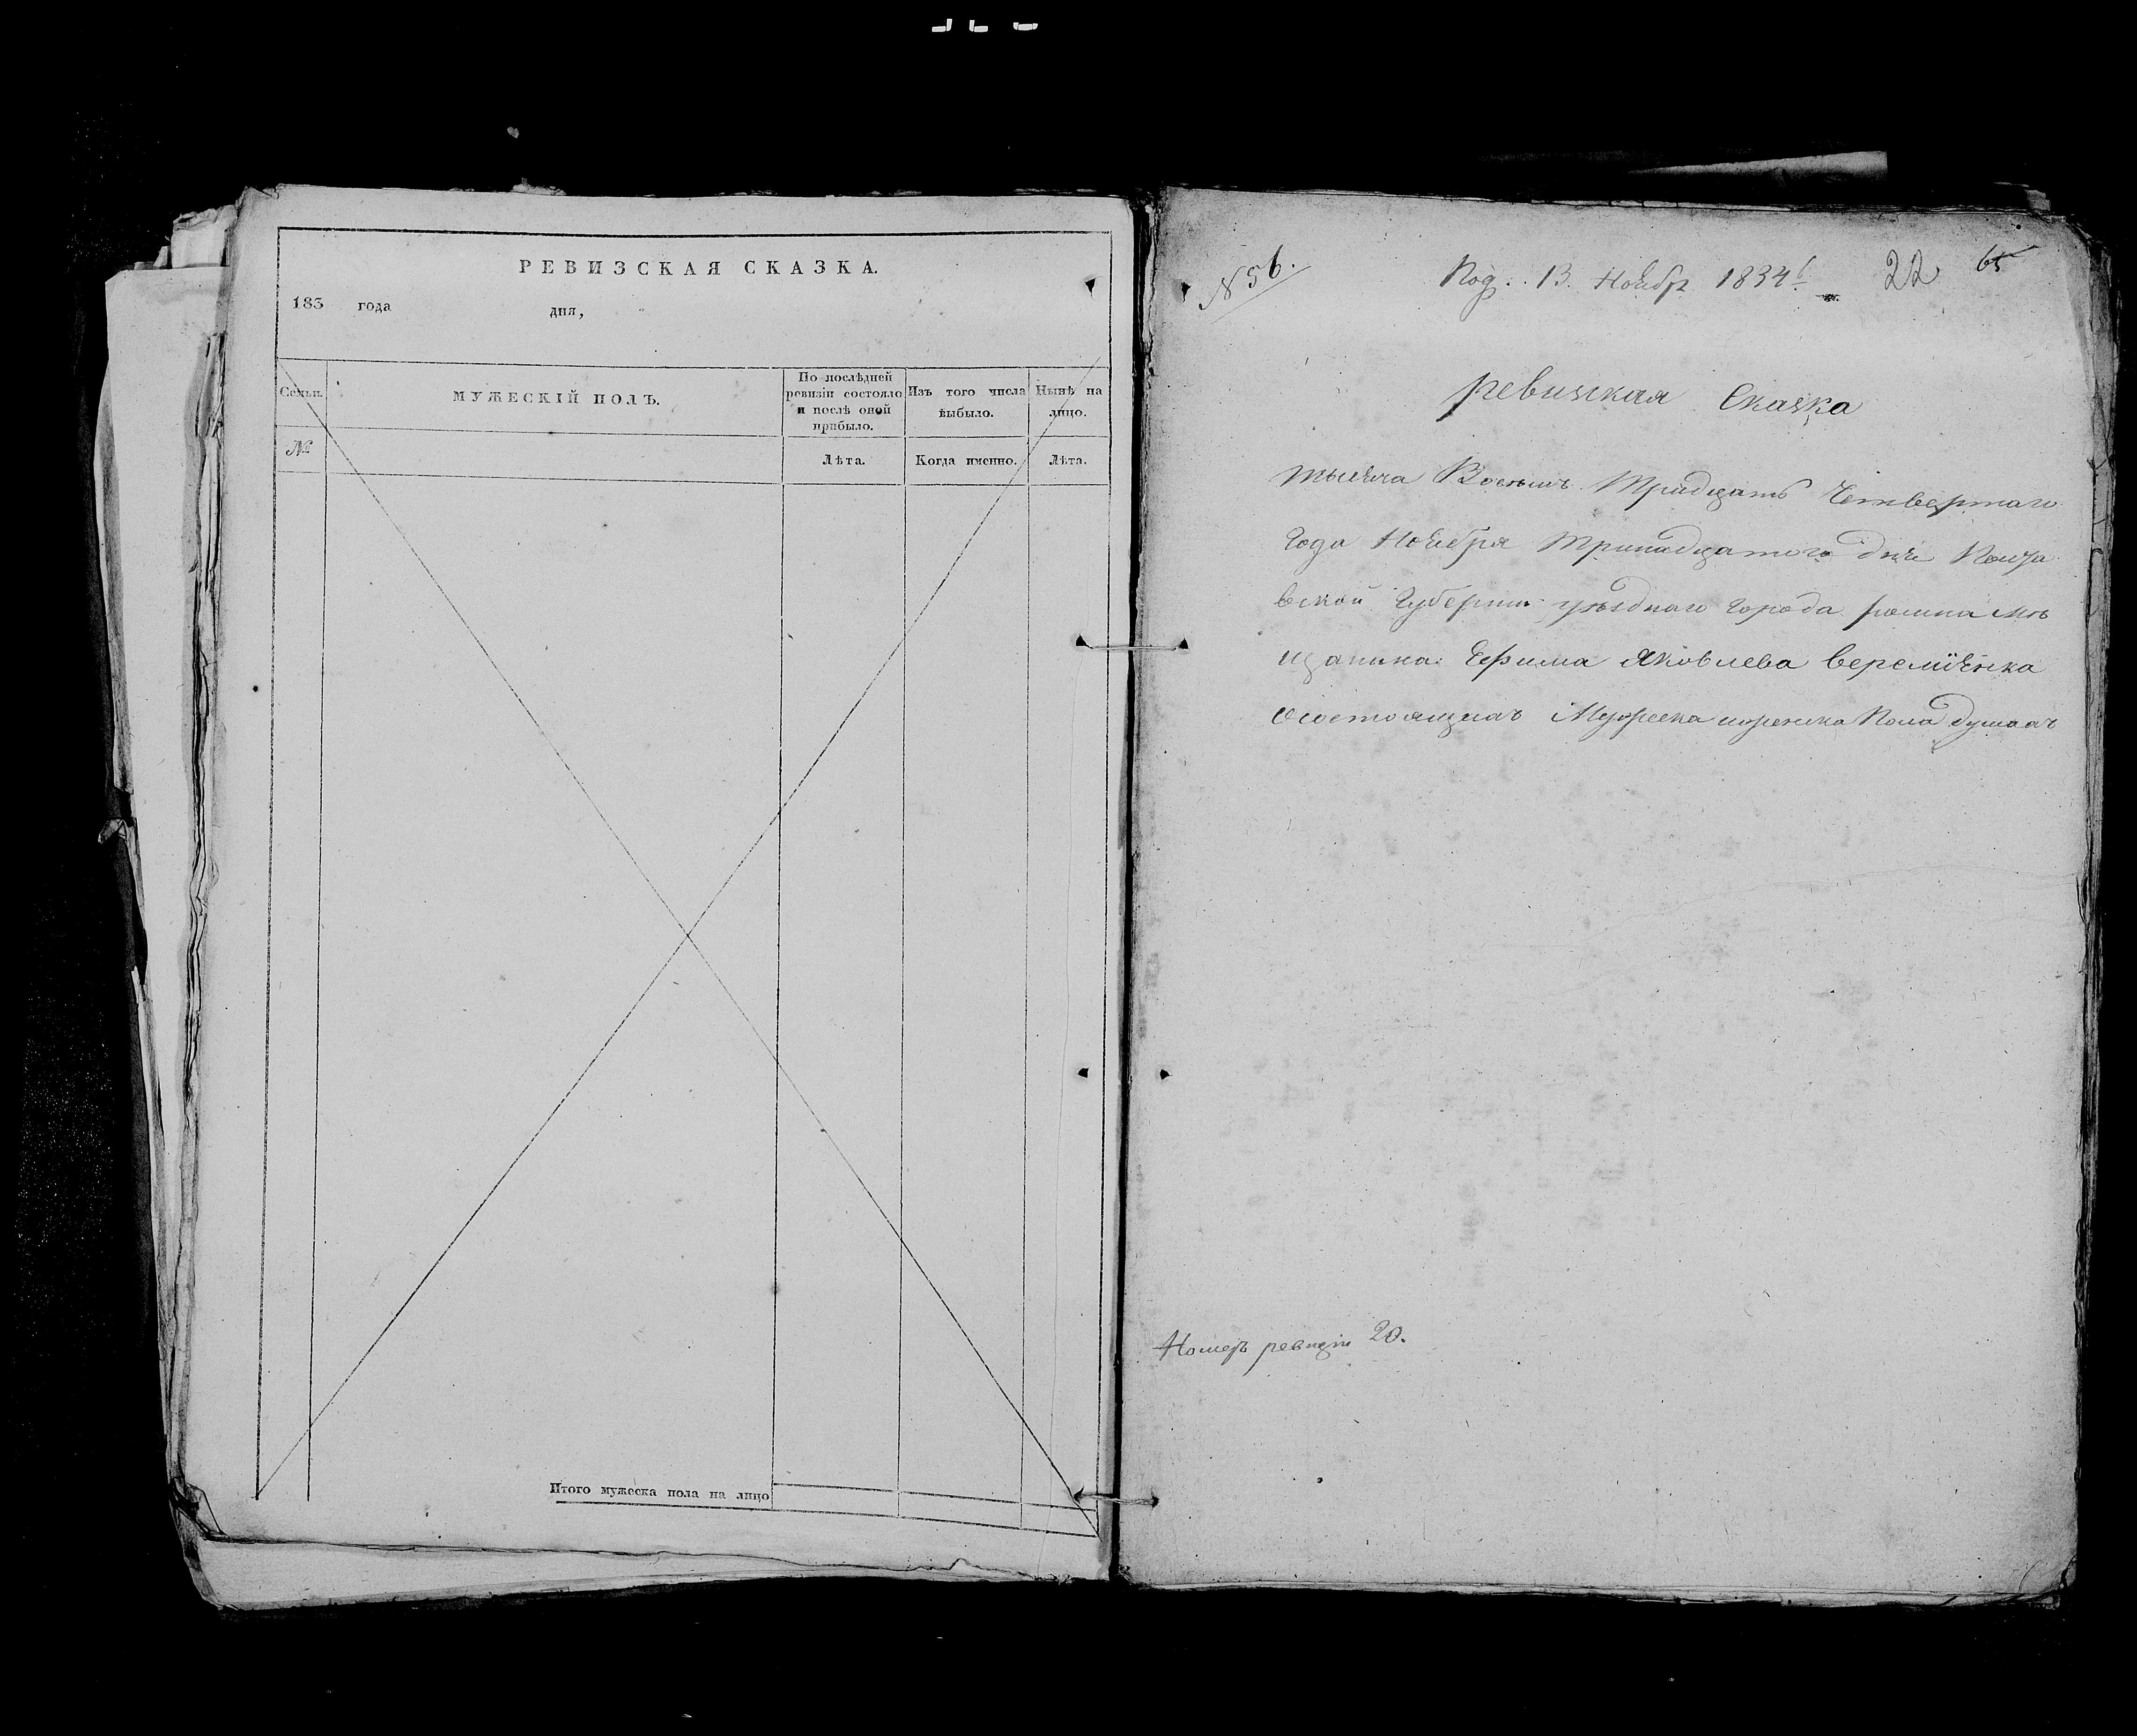 РЕВИЗСКАЯ СКАЗКА.
183 года дня,
Семьи.
МУЖЕСКІЙ ПОЛЪ.
По послѣдней ревизіи состояло и послѣ оной прибыло.
Изъ того числа выбыло.
Нынѣ на лицо.
№
Лѣта.
Когда именно.
Лѣта.
Итого мужеска пола на лицо
№ 56.
Под. 13. Ноября 1834
22
65
ревизская Сказка
тысяча Восемъ Тридцать Четвертаго
Года Ноября Тринадцатого дня Полта
вской Губерніи уѣзднаго города ромна мѣ
щанина Ефима Яковлева веремѣенка
Осостоящихъ Мужеска иженска Пола душахъ
Номеръ ревизіи 20.